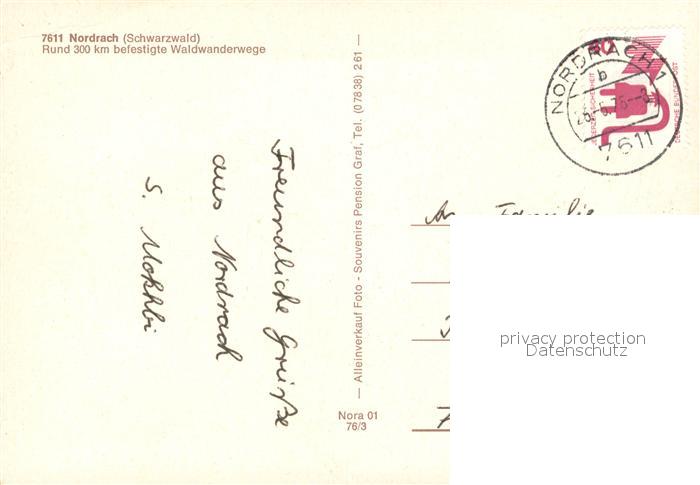 7611 Nordrach (Schwarzwald)
Rund 300 km befestigte Waldwanderwege
Freundliche Grüße
aus Nordrach
— Alleinverkauf Foto - Souvenirs Pension Graf, Tel. (07838) 261 —
Nora 01
76/3
NORDRACH 1
b
7611
JEDERZEIT SICHERHEIT
DEUTSCHE BUNDESPOST
An Familie
privacy protection
Datenschutz